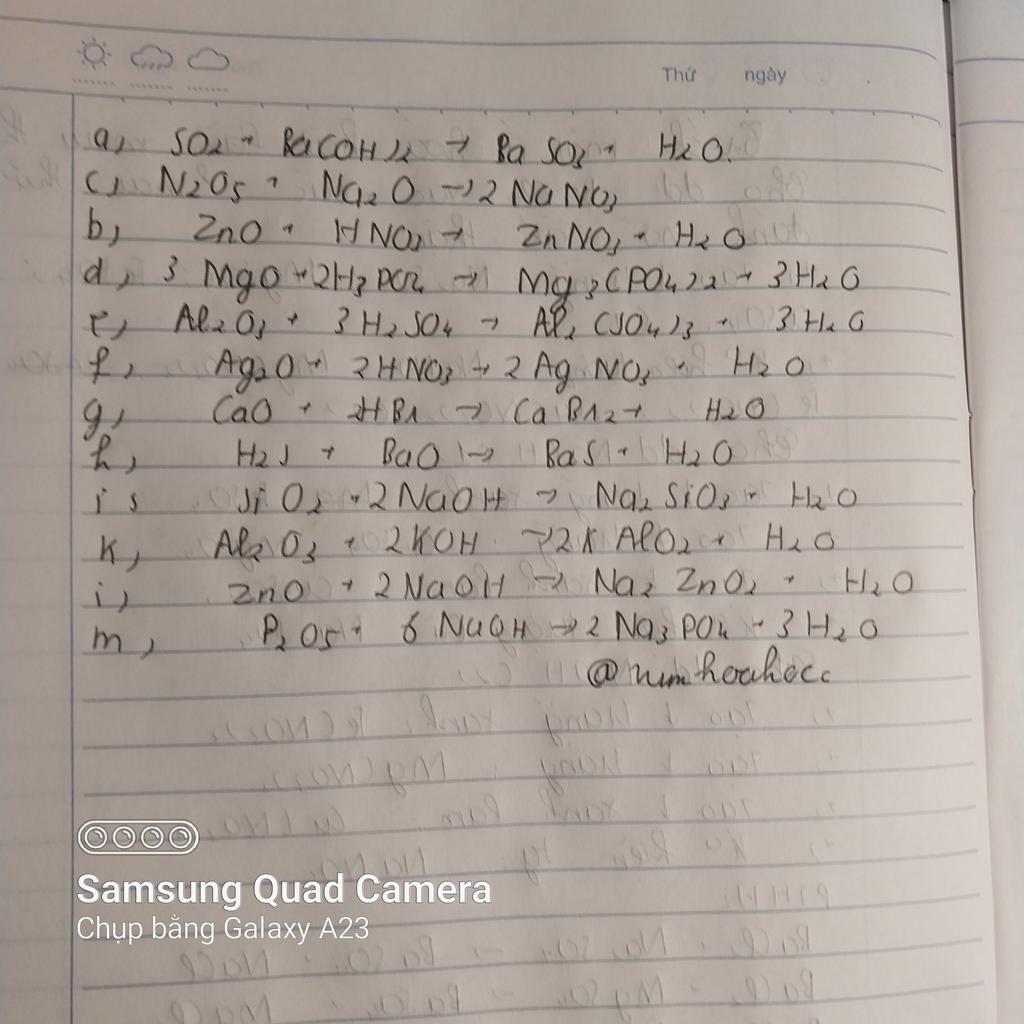 Thứ ngày
a, SO2 + Ba(OH)2 → BaSO3 + H2O.
c, N2O5 + Na2O → 2NaNO3
b, ZnO + HNO3 → ZnNO3 + H2O
d, 3MgO + 2H3PO4 → Mg3(PO4)2 + 3H2O
e, Al2O3 + 3H2SO4 → Al2(SO4)3 + 3H2O
f, Ag2O + 2HNO3 → 2AgNO3 + H2O
g, CaO + 2HBr → CaBr2 + H2O
h, H2S + BaO → BaS + H2O
i, SiO2 + 2NaOH → Na2SiO3 + H2O
k, Al2O3 + 2KOH → 2KAlO2 + H2O
i, ZnO + 2NaOH → Na2ZnO2 + H2O
m, P2O5 + 6NaOH → 2Na3PO4 + 3H2O
Samsung Quad Camera
Chụp bằng Galaxy A23